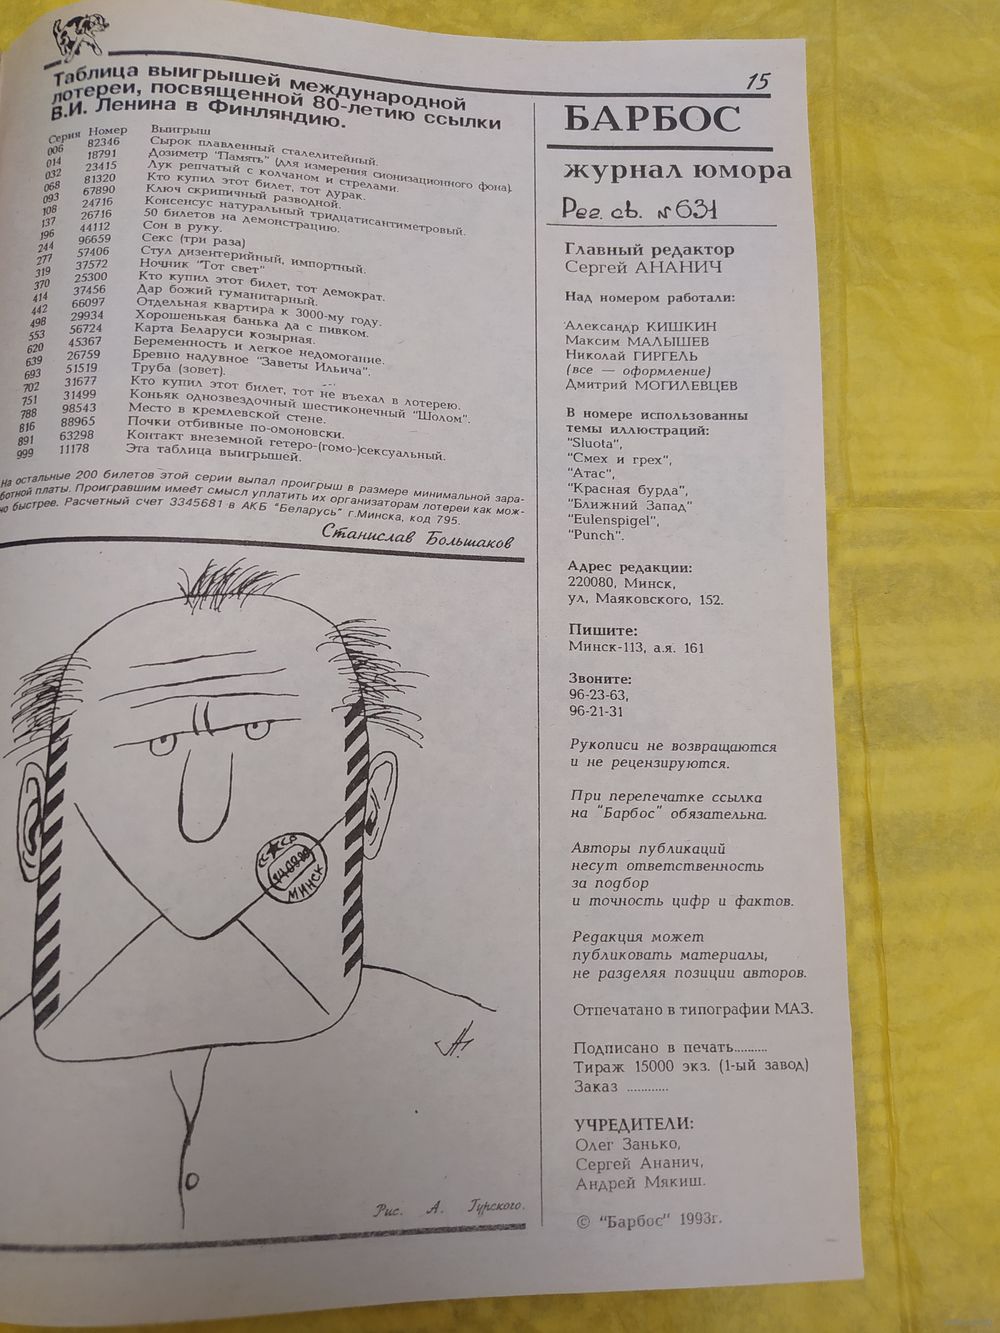 15
Таблица выигрышей международной
лотереи, посвященной 80-летию ссылки
В.И. Ленина в Финляндию.
Серия Номер Выигрыш
006 82346 Сырок плавленный сталелитейный.
014 18791 Дозиметр "Память" (для измерения сионизационного фона).
032 23415 Лук репчатый с колчаном и стрелами.
068 81320 Кто купил этот билет, тот дурак.
093 67890 Ключ скрипичный разводной.
108 24716 Консенсус натуральный тридцатисантиметровый.
137 26716 50 билетов на демонстрацию.
196 44112 Сон в руку.
244 96659 Секс (три раза)
277 57406 Стул дизентерийный, импортный.
319 37572 Ночник "Тот свет"
370 25300 Кто купил этот билет, тот демократ.
414 37456 Дар божий гуманитарный.
442 66097 Отдельная квартира к 3000-му году.
498 29934 Хорошенькая банька да с пивком.
553 56724 Карта Беларуси козырная.
620 45367 Беременность и легкое недомогание.
639 26759 Бревно надувное "Заветы Ильича".
693 51519 Труба (зовет).
702 31677 Кто купил этот билет, тот не въехал в лотерею.
751 31499 Коньяк однозвездочный шестиконечный "Шолом".
788 98543 Место в кремлевской стене.
816 88965 Почки отбивные по-омоновски.
891 63298 Контакт внеземной гетеро-(гомо-)сексуальный.
999 11178 Эта таблица выигрышей.
На остальные 200 билетов этой серии выпал проигрыш в размере минимальной зара-
ботной платы. Проигравшим имеет смысл уплатить их организаторам лотереи как мож-
но быстрее. Расчетный счет 3345681 в АКБ "Беларусь" г.Минска, код 795.
Станислав Большаков
СССР
МИНСК
Рис. А. Гурского.
БАРБОС
журнал юмора
Рег. св. № 631
Главный редактор
Сергей АНАНИЧ
Над номером работали:
Александр КИШКИН
Максим МАЛЫШЕВ
Николай ГИРГЕЛЬ
(все — оформление)
Дмитрий МОГИЛЕВЦЕВ
В номере использованны
темы иллюстраций:
"Sluota",
"Смех и грех",
"Атас",
"Красная бурда",
"Ближний Запад"
"Eulenspigel",
"Punch".
Адрес редакции:
220080, Минск,
ул, Маяковского, 152.
Пишите:
Минск-113, а.я. 161
Звоните:
96-23-63,
96-21-31
Рукописи не возвращаются
и не рецензируются.
При перепечатке ссылка
на "Барбос" обязательна.
Авторы публикаций
несут ответственность
за подбор
и точность цифр и фактов.
Редакция может
публиковать материалы,
не разделяя позиции авторов.
Отпечатано в типографии МАЗ.
Подписано в печать..........
Тираж 15000 экз. (1-ый завод)
Заказ ............
УЧРЕДИТЕЛИ:
Олег Занько,
Сергей Ананич,
Андрей Мякиш.
© "Барбос" 1993г.